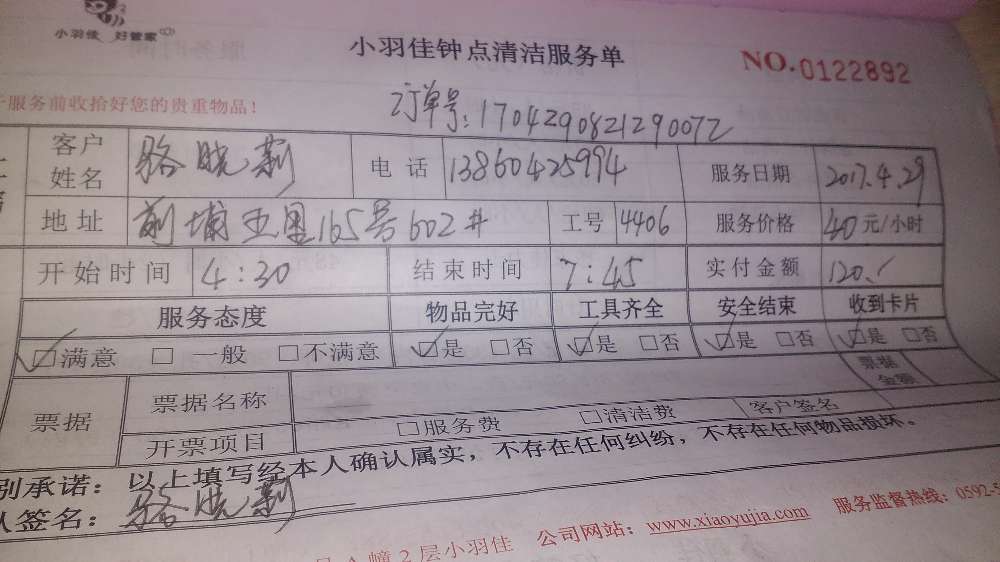 小羽佳 好管家
小羽佳钟点清洁服务单
NO.0122892
服务前收拾好您的贵重物品!
订单号:1704290821290072
客户姓名 骆晓莉 电话 13860425994 服务日期 2017.4.29
地址 前埔五里165号602# 工号 4406 服务价格 40元/小时
开始时间 4:30 结束时间 7:45 实付金额 120.
服务态度 物品完好 工具齐全 安全结束 收到卡片
☑满意 □一般 □不满意 ☑是 □否 ☑是 □否 ☑是 □否 ☑是 □否
票据 票据名称 票据金额
开票项目 □服务费 □清洁费 客户签名
别承诺:以上填写经本人确认属实,不存在任何纠纷,不存在任何物品损坏。
人签名:骆晓莉
幢2层小羽佳 公司网站:www.xiaoyujia.com 服务监督热线:0592-5